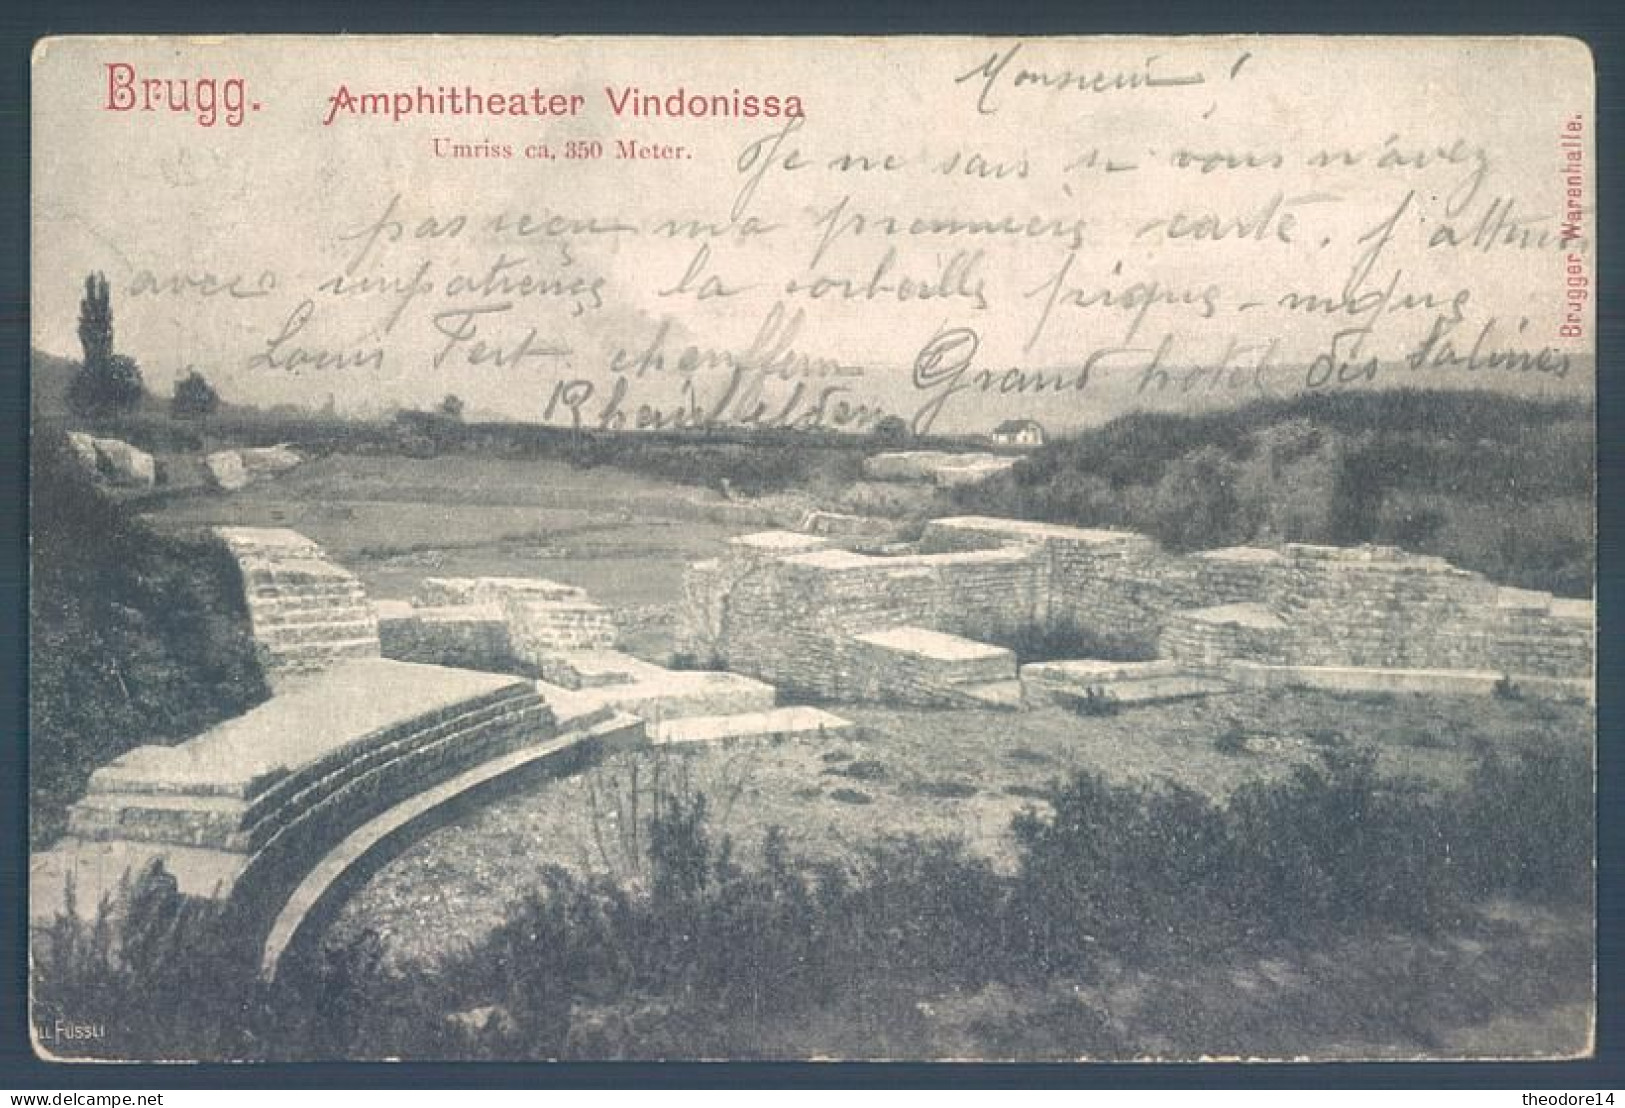 Brugg. Amphitheater Vindonissa
Umriss ca. 350 Meter.
Brugger Warenhalle.
Monsieur !
Je ne sais si vous n'avez
pas reçu ma première carte. J'
avec impatience la corbeille pique-nique
Louis Fert chauffeur Grand hotel des Salines
Rheinfelden
LL FÜSSLI
www.delcampe.net
theodore14